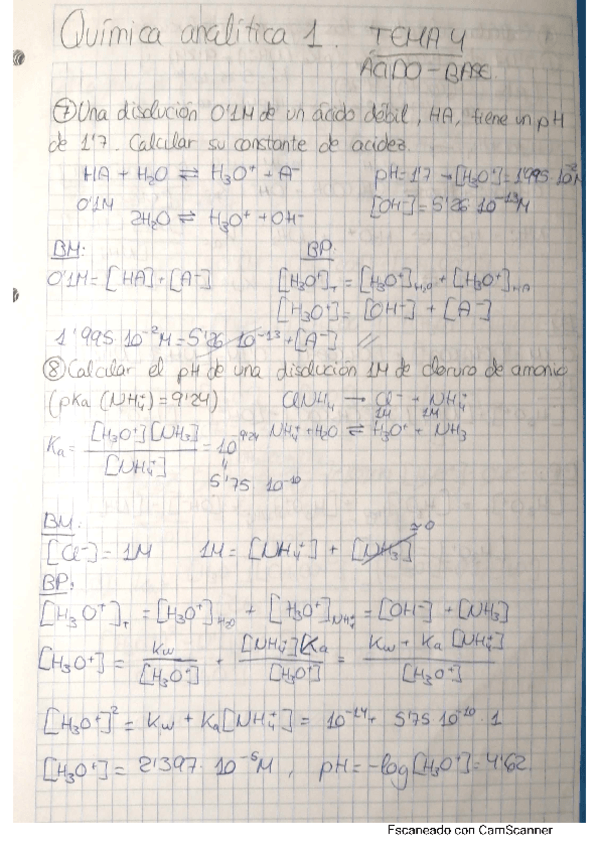 Química analítica 1. TEMA 4
ÁCIDO-BASE
⑦ Una disolución 0'1M de un ácido débil, HA, tiene un pH
de 1'7. Calcular su constante de acidez.
HA + H₂O ⇌ H₃O⁺ + A⁻ pH=1'7 → [H₃O⁺]=1'995·10⁻²M
0'1M [OH⁻]=5'26·10⁻¹³M
2H₂O ⇌ H₃O⁺ + OH⁻
BM: BP:
0'1M = [HA]+[A⁻] [H₃O⁺]T = [H₃O⁺]H₂O + [H₃O⁺]HA
[H₃O⁺] = [OH⁻] + [A⁻]
1'995·10⁻²M = 5'26·10⁻¹³ + [A⁻] //
⑧ Calcular el pH de una disolución 1M de cloruro de amonio
(pKa (NH₄⁺) = 9'24) ClNH₄ → Cl⁻ + NH₄⁺
1M 1M
Ka = [H₃O⁺][NH₃] / [NH₄⁺] = 10⁻⁹'²⁴ NH₄⁺ + H₂O ⇌ H₃O⁺ + NH₃
"
5'75 10⁻¹⁰
BM:
[Cl⁻] = 1M 1M = [NH₄⁺] + [NH₃] ≃0
BP:
[H₃O⁺]T = [H₃O⁺]H₂O + [H₃O⁺]NH₄⁺ = [OH⁻] + [NH₃]
[H₃O⁺] = Kw / [H₃O⁺] + [NH₄⁺]Ka / [H₃O⁺] = Kw + Ka [NH₄⁺] / [H₃O⁺]
[H₃O⁺]² = Kw + Ka[NH₄⁺] = 10⁻¹⁴ + 5'75 10⁻¹⁰ · 1
[H₃O⁺] = 2'397·10⁻⁵M, pH = -log[H₃O⁺] = 4'62.
Escaneado con CamScanner